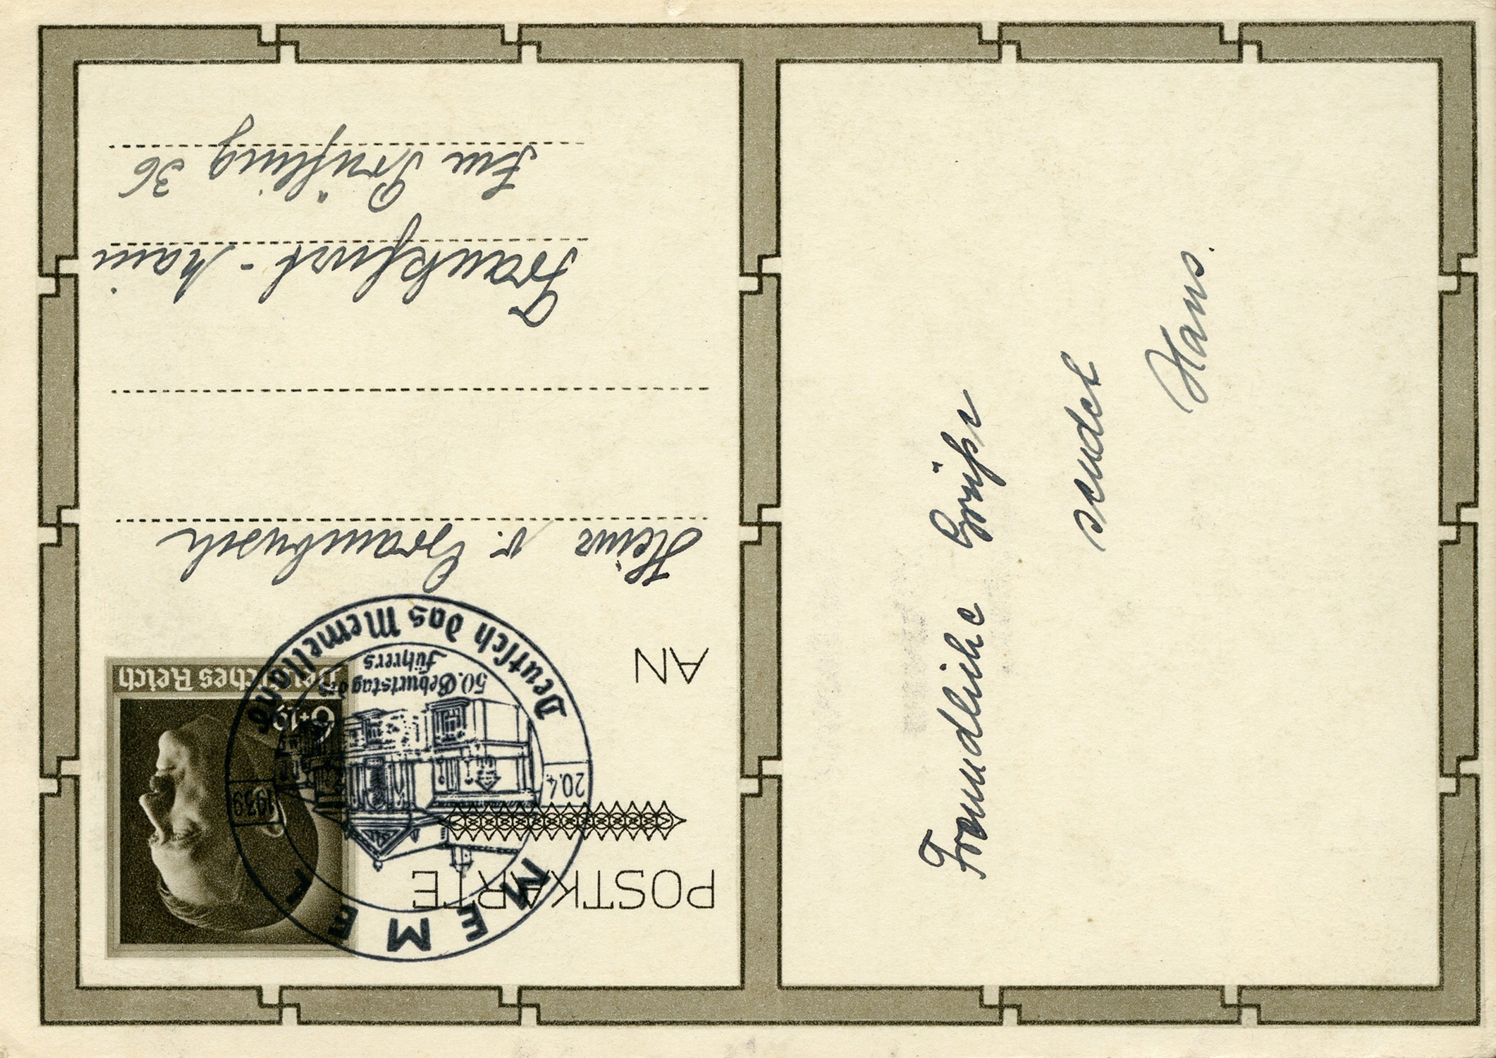 POSTKARTE
Deutsches Reich
6+19
MEMEL
20.4
1939
50. Geburtstag des
Führers
Deutsch das Memelland
AN
Heinz v. Grambusch
Frankfurt-Main
Am Prüfling 36
Freundliche Grüße
sendet
Hans.